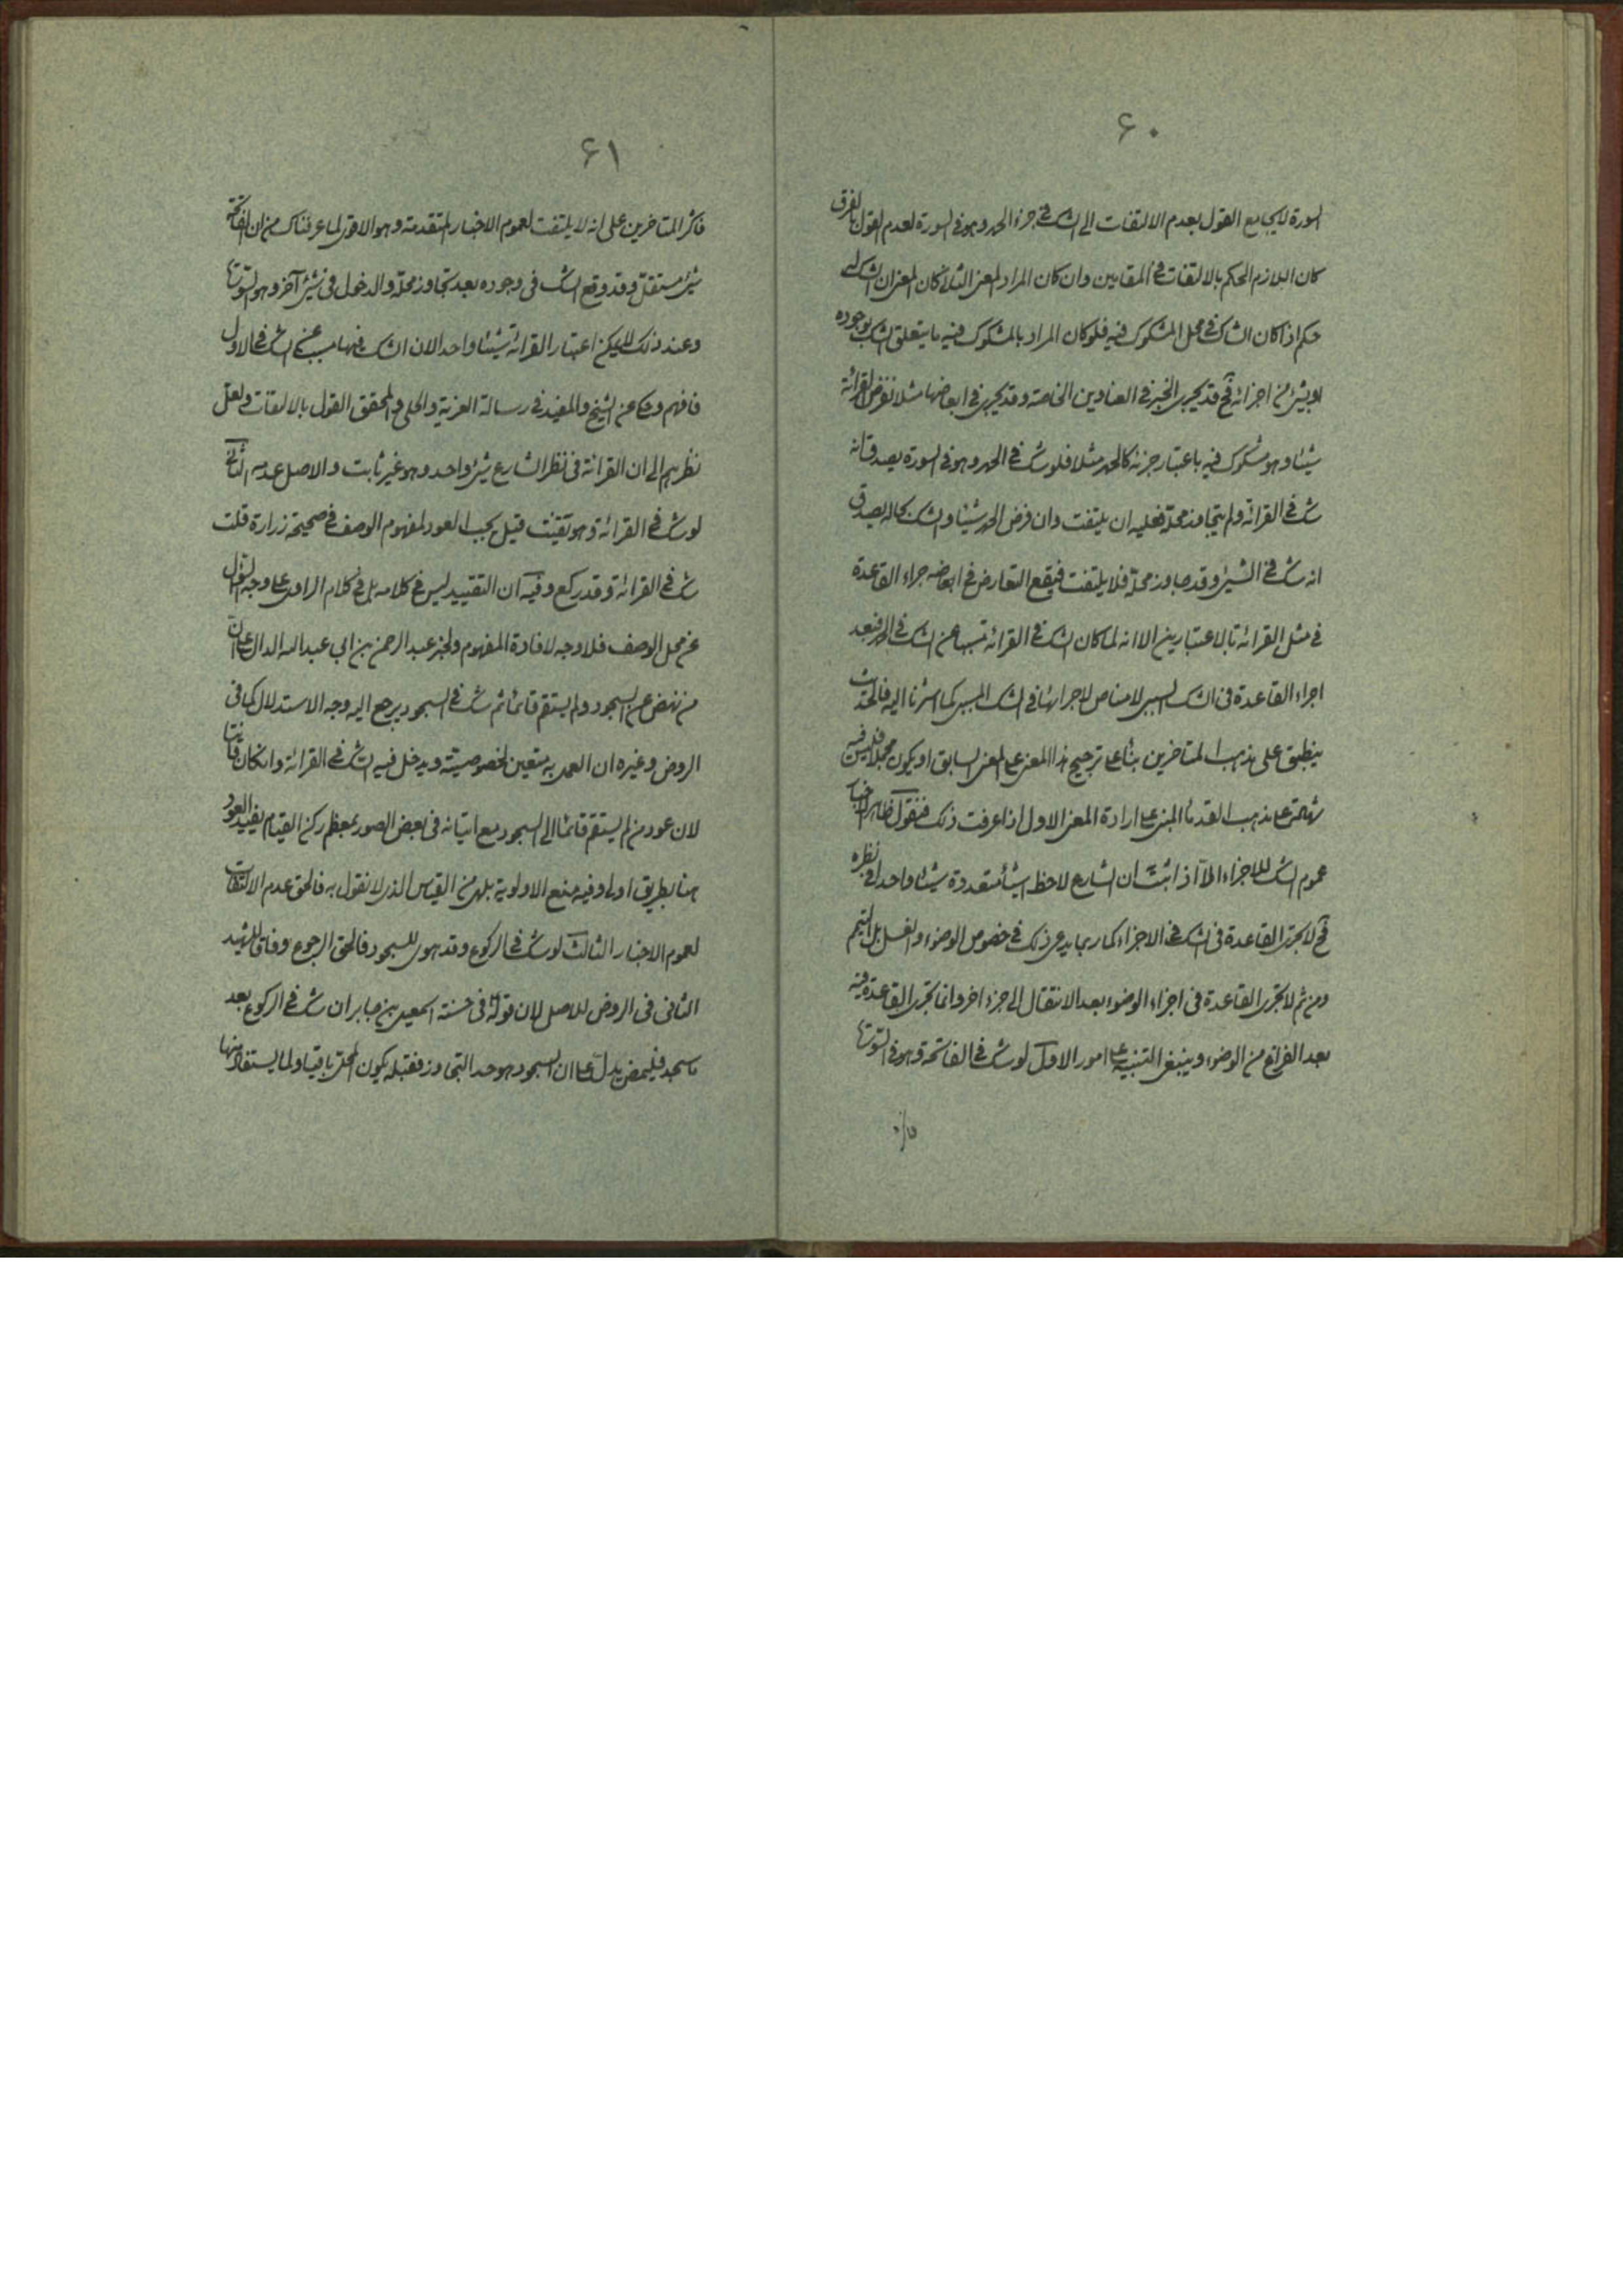 ۶۰
السورة لا يجامع القول بعدم الالتفات الى الشك فى جزء الحمد وهو فى السورة لعدم القول بالفرق
كان اللازم الحكم بالالتفات فى المقامين وان كان المراد المعنى الثانى كان المعنى ان الشك له
حكم اذا كان الشك فى محل المشكوك فيه فلو كان المراد بالمشكوك فيه ما يتعلق الشك بوجوده
او بشئ من اجزائه فح قد يجرى الخبر فى العناوين الخاصة وقد يجرى فى ابعاضها مثلا نفرض القرائة
شيئا وهو مشكوك فيه باعتبار جزئه كالحمد مثلا فلو شك فى الحمد وهو فى السورة يصدق انه
شك فى القرائة ولم يتجاوز محله فعليه ان يلتفت وان فرض الحمد شيئا والشك بحاله يصدق
انه شك فى الشئ وقد جاوز محله فلا يلتفت فيقع التعارض فى اجراء القاعدة
فى مثل القرائة بالاعتبارين الا انه لما كان الشك فى القرائة مسببا عن الشك فى الحمد فبعد
اجراء القاعدة فى الشك السببى لا مناص لاجرائها فى الشك المسببى كما اشرنا اليه فالحديث
ينطبق على مذهب المتاخرين بناء على ترجيح هذا المعنى على المعنى السابق او يكون مجملا فليس فيه
شهادة على مذهب القدماء المبنى على ارادة المعنى الاول اذا عرفت ذلك فنقول ظاهر الاخبار
عموم الشك للاجزاء الا اذا ثبت ان الشارع لاحظ اشياء متعددة شيئا واحدا فى نظره
فح لا تجرى القاعدة فى الشك فى الاجزاء كما ربما يدعى ذلك فى خصوص الوضوء والغسل بل التيمم
ومن ثم لا تجرى القاعدة فى اجزاء الوضوء بعد الانتقال الى جزء اخر وانما تجرى القاعدة فيه
بعد الفراغ من الوضوء وينبغى التنبيه على امور الاول لو شك فى الفاتحة وهو فى السورة
۶۱
فاكثر المتاخرين على انه لا يلتفت لعموم الاخبار المتقدمة وهو الاقوى لما عرفناك من ان الفاتحة
شئ مستقل وقد وقع الشك فى وجوده بعد تجاوز محله والدخول فى شئ آخر وهو السورة
وعند ذلك لا يمكن اعتبار القرائة شيئا واحدا لان الشك فيها مسبب عن الشك فى الاول
فافهم وحكى عن الشيخ والمفيد فى رسالة العزية والحلى والمحقق القول بالالتفات ولعل
نظرهم الى ان القرائة فى نظر الشارع شئ واحد وهو غير ثابت والاصل عدمه الثانى
لو شك فى القرائة وهو قيل يجب العود لمفهوم الوصف فى صحيحة زرارة قلت
شك فى القرائة وقد ركع وفيه ان التقييد ليس فى كلامه بل فى كلام الراوى على وجه السؤال
عن محل الوصف فلا وجه لافادة المفهوم ولخبر عبد الرحمن بن ابى عبد الله الدال على ان
من نهض عن السجود ولم يستقم قائما ثم شك فى السجود يرجع اليه وجه الاستدلال كما فى
الروض وغيره ان العمل به متعين لخصوصيته ويدخل فيه الشك فى القرائة وان كان قائما
لان عود من لم يستقم قائما الى السجود مع اتيانه فى بعض الصور بمعظم ركن القيام يفيد العود
هنا بطريق اولى وفيه منع الاولوية بل هو من القياس الذى لا نقول به فالحق عدم الالتفات
لعموم الاخبار الثالث لو شك فى الركوع وقد هوى للسجود فالحق الرجوع وفاقا للشهيد
الثانى فى الروض للاصل لان قوله فى حسنة اسمعيل بن جابر ان شك فى الركوع بعد
ما سجد فليمض يدل على ان السجود هو حد التجاوز فقبله يكون المحل باقيا ولما يستفاد منها